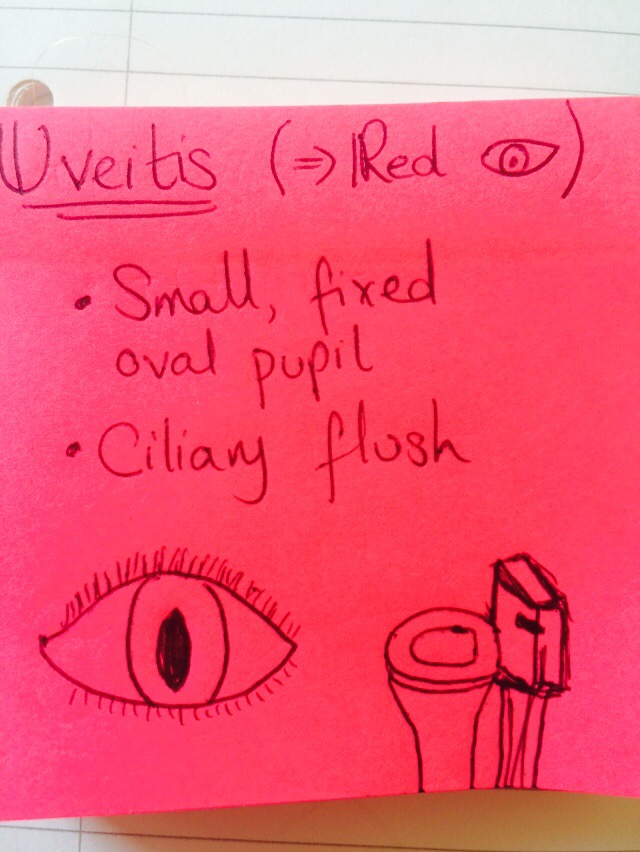 Uveitis (⇒ Red 👁)
• Small, fixed
oval pupil
• Ciliary flush